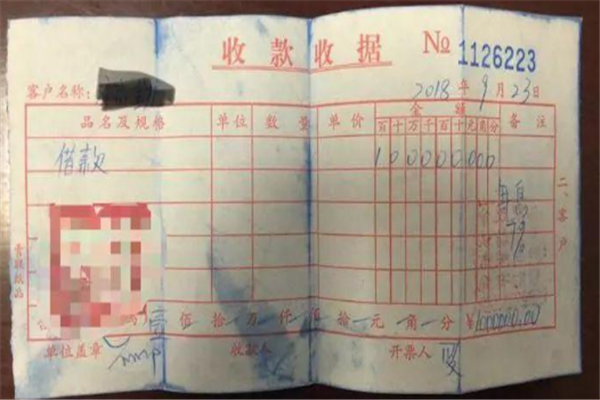 收款收据 № 1126223
客户名称: 2018年9月23日
品名及规格 单位 数量 单价 金额 备注
百十万千百十元角分
借款 100000.000
二、客户
7%
壹佰拾万仟佰拾元角分 ¥1000000.00
单位盖章 收款人 开票人